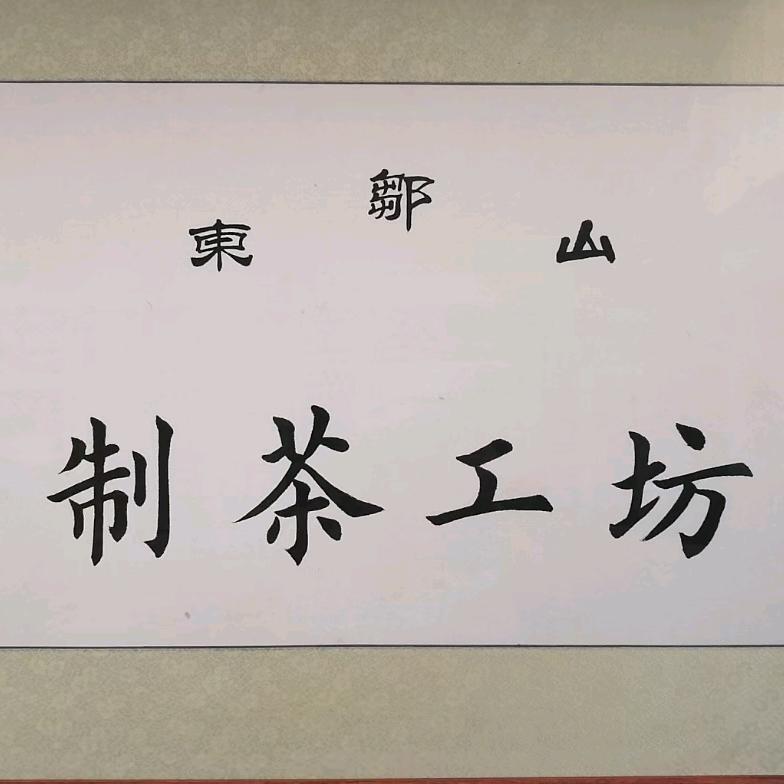 東鄒山
制茶工坊